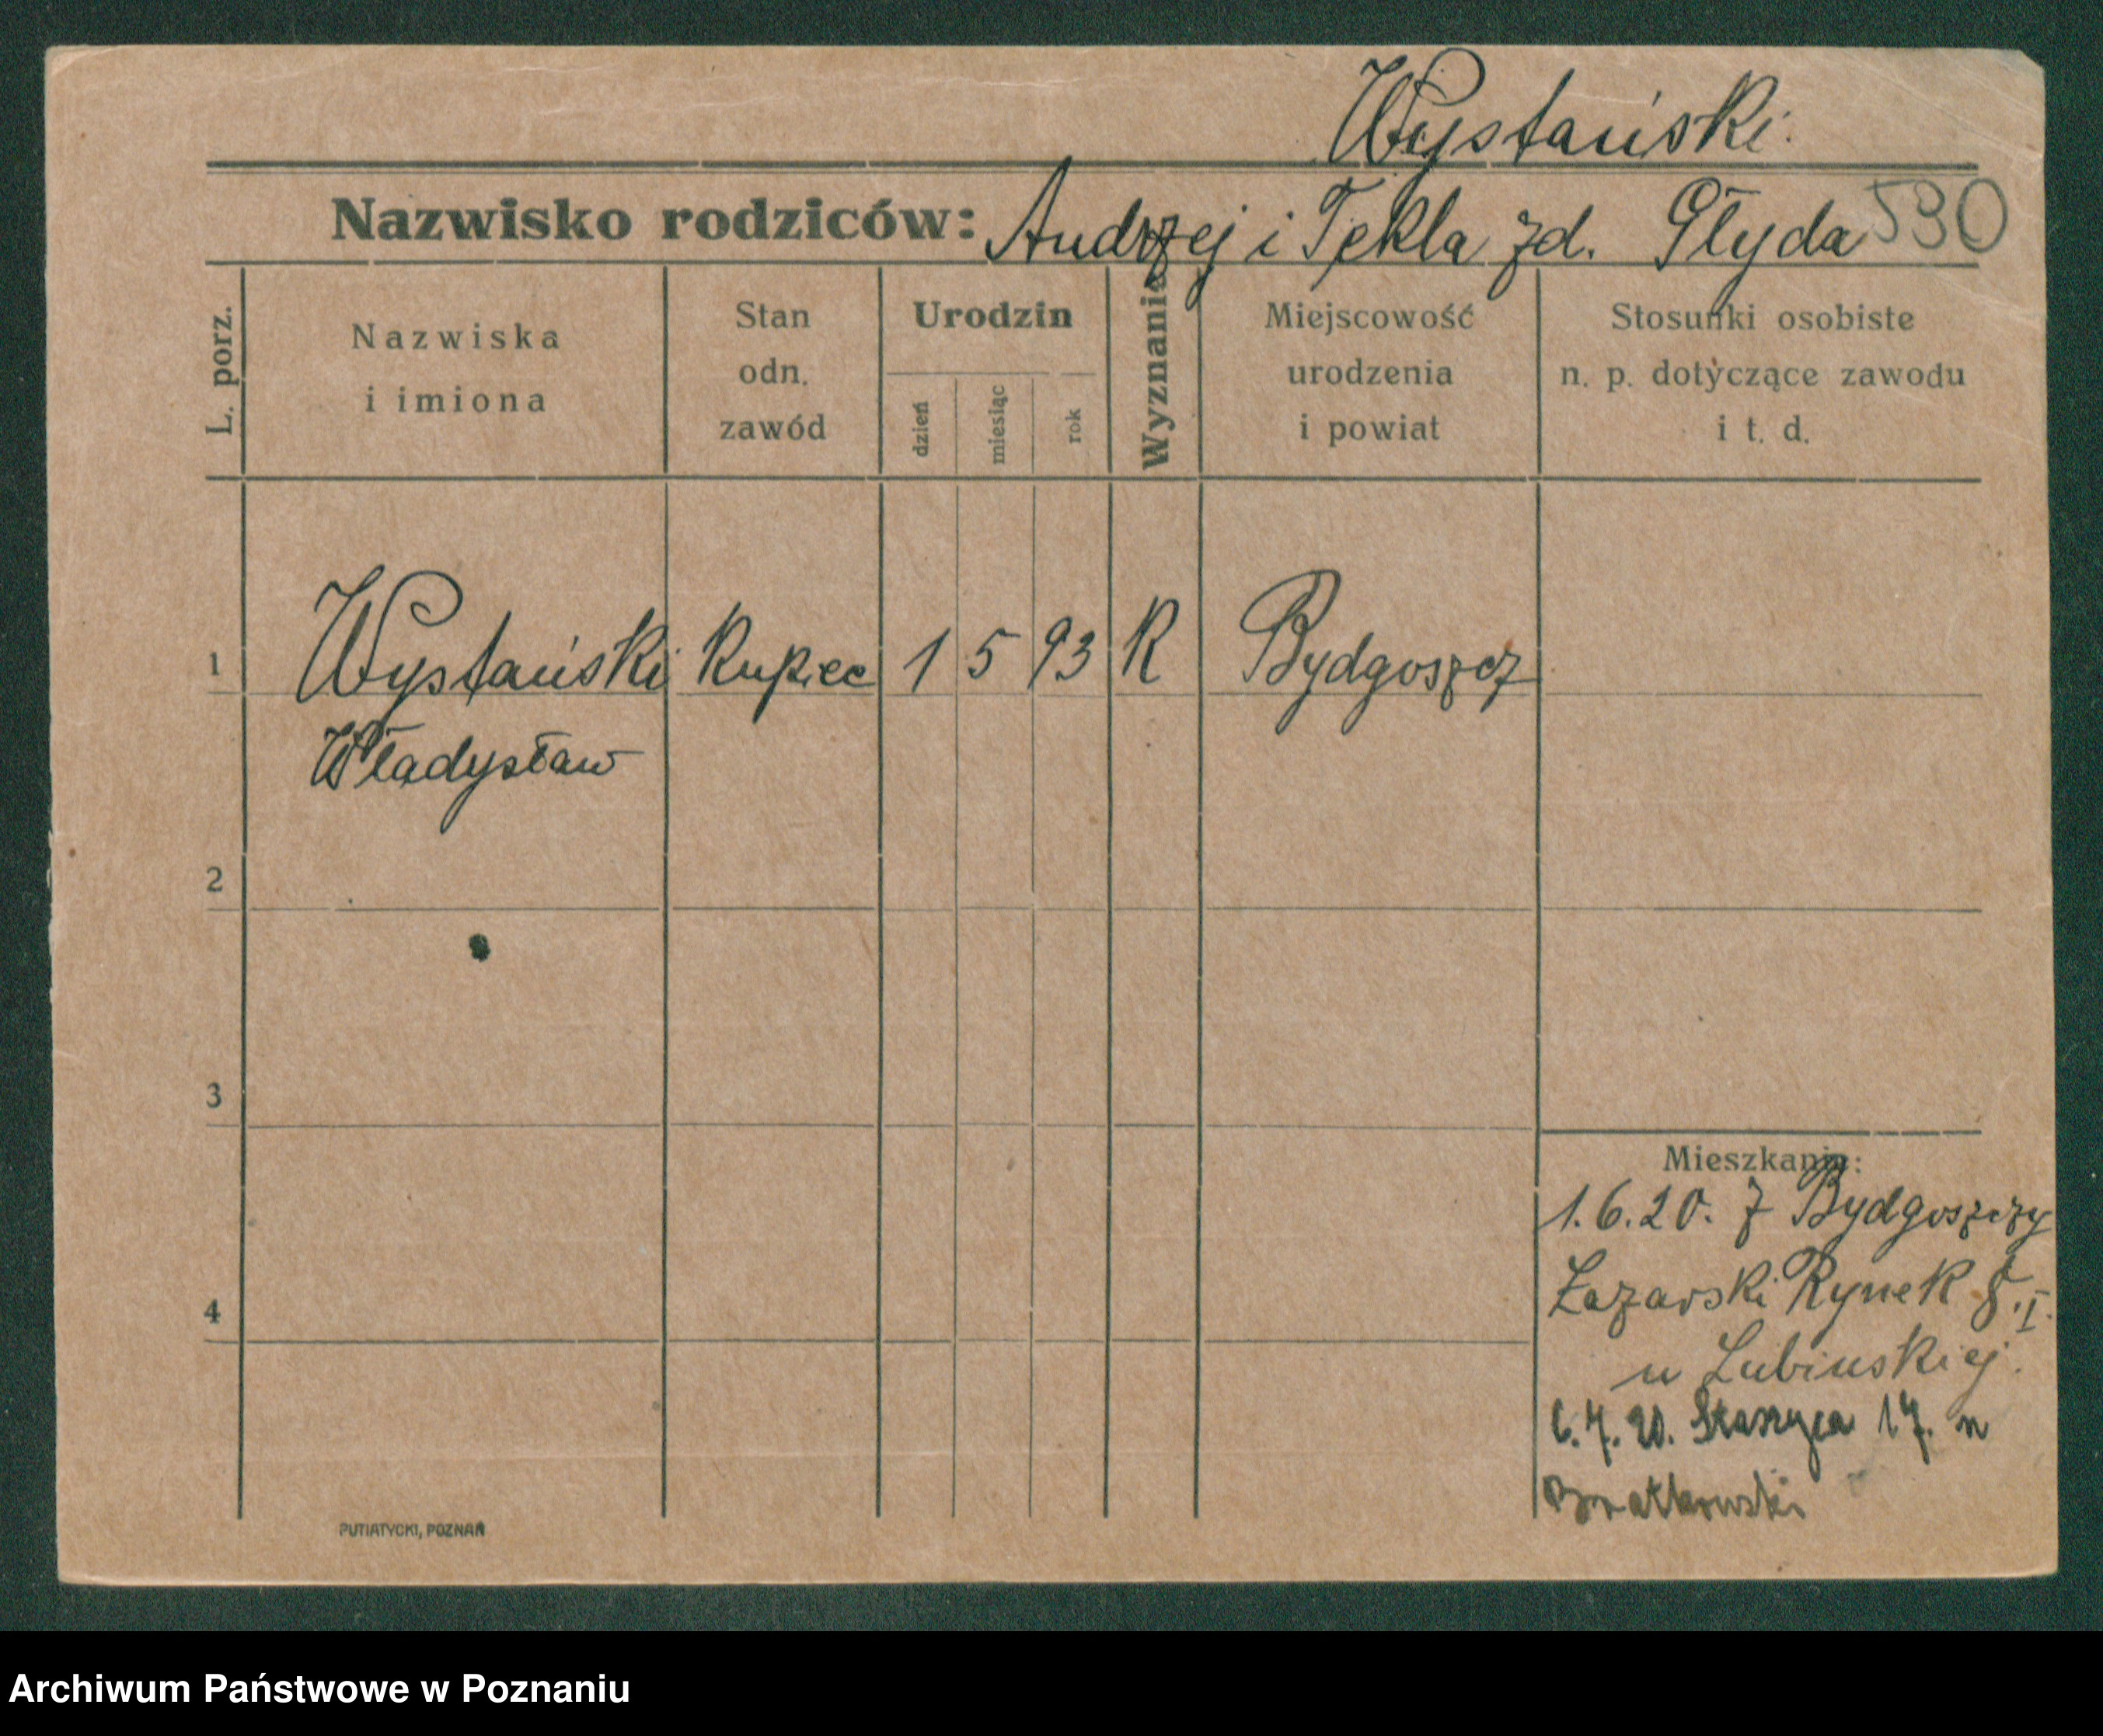 Wystański.
Nazwisko rodziców: Andrzej i Tekla zd. Głyda 530
L. porz.
Nazwiska
i imiona
Stan
odn.
zawód
Urodzin
dzień
miesiąc
rok
Wyznanie
Miejscowość
urodzenia
i powiat
Stosunki osobiste
n. p. dotyczące zawodu
i t. d.
1 Wystański Kupiec 1 5 93 K Bydgoszcz
Władysław
2
3
Mieszkanie:
1.6.20. z Bydgoszczy
4
Łazarski Rynek 8. I.
u Lubinskiej.
6.7.20. Staszyca 17. u
Bratkowski
PUTIATYCKI, POZNAŃ
Archiwum Państwowe w Poznaniu